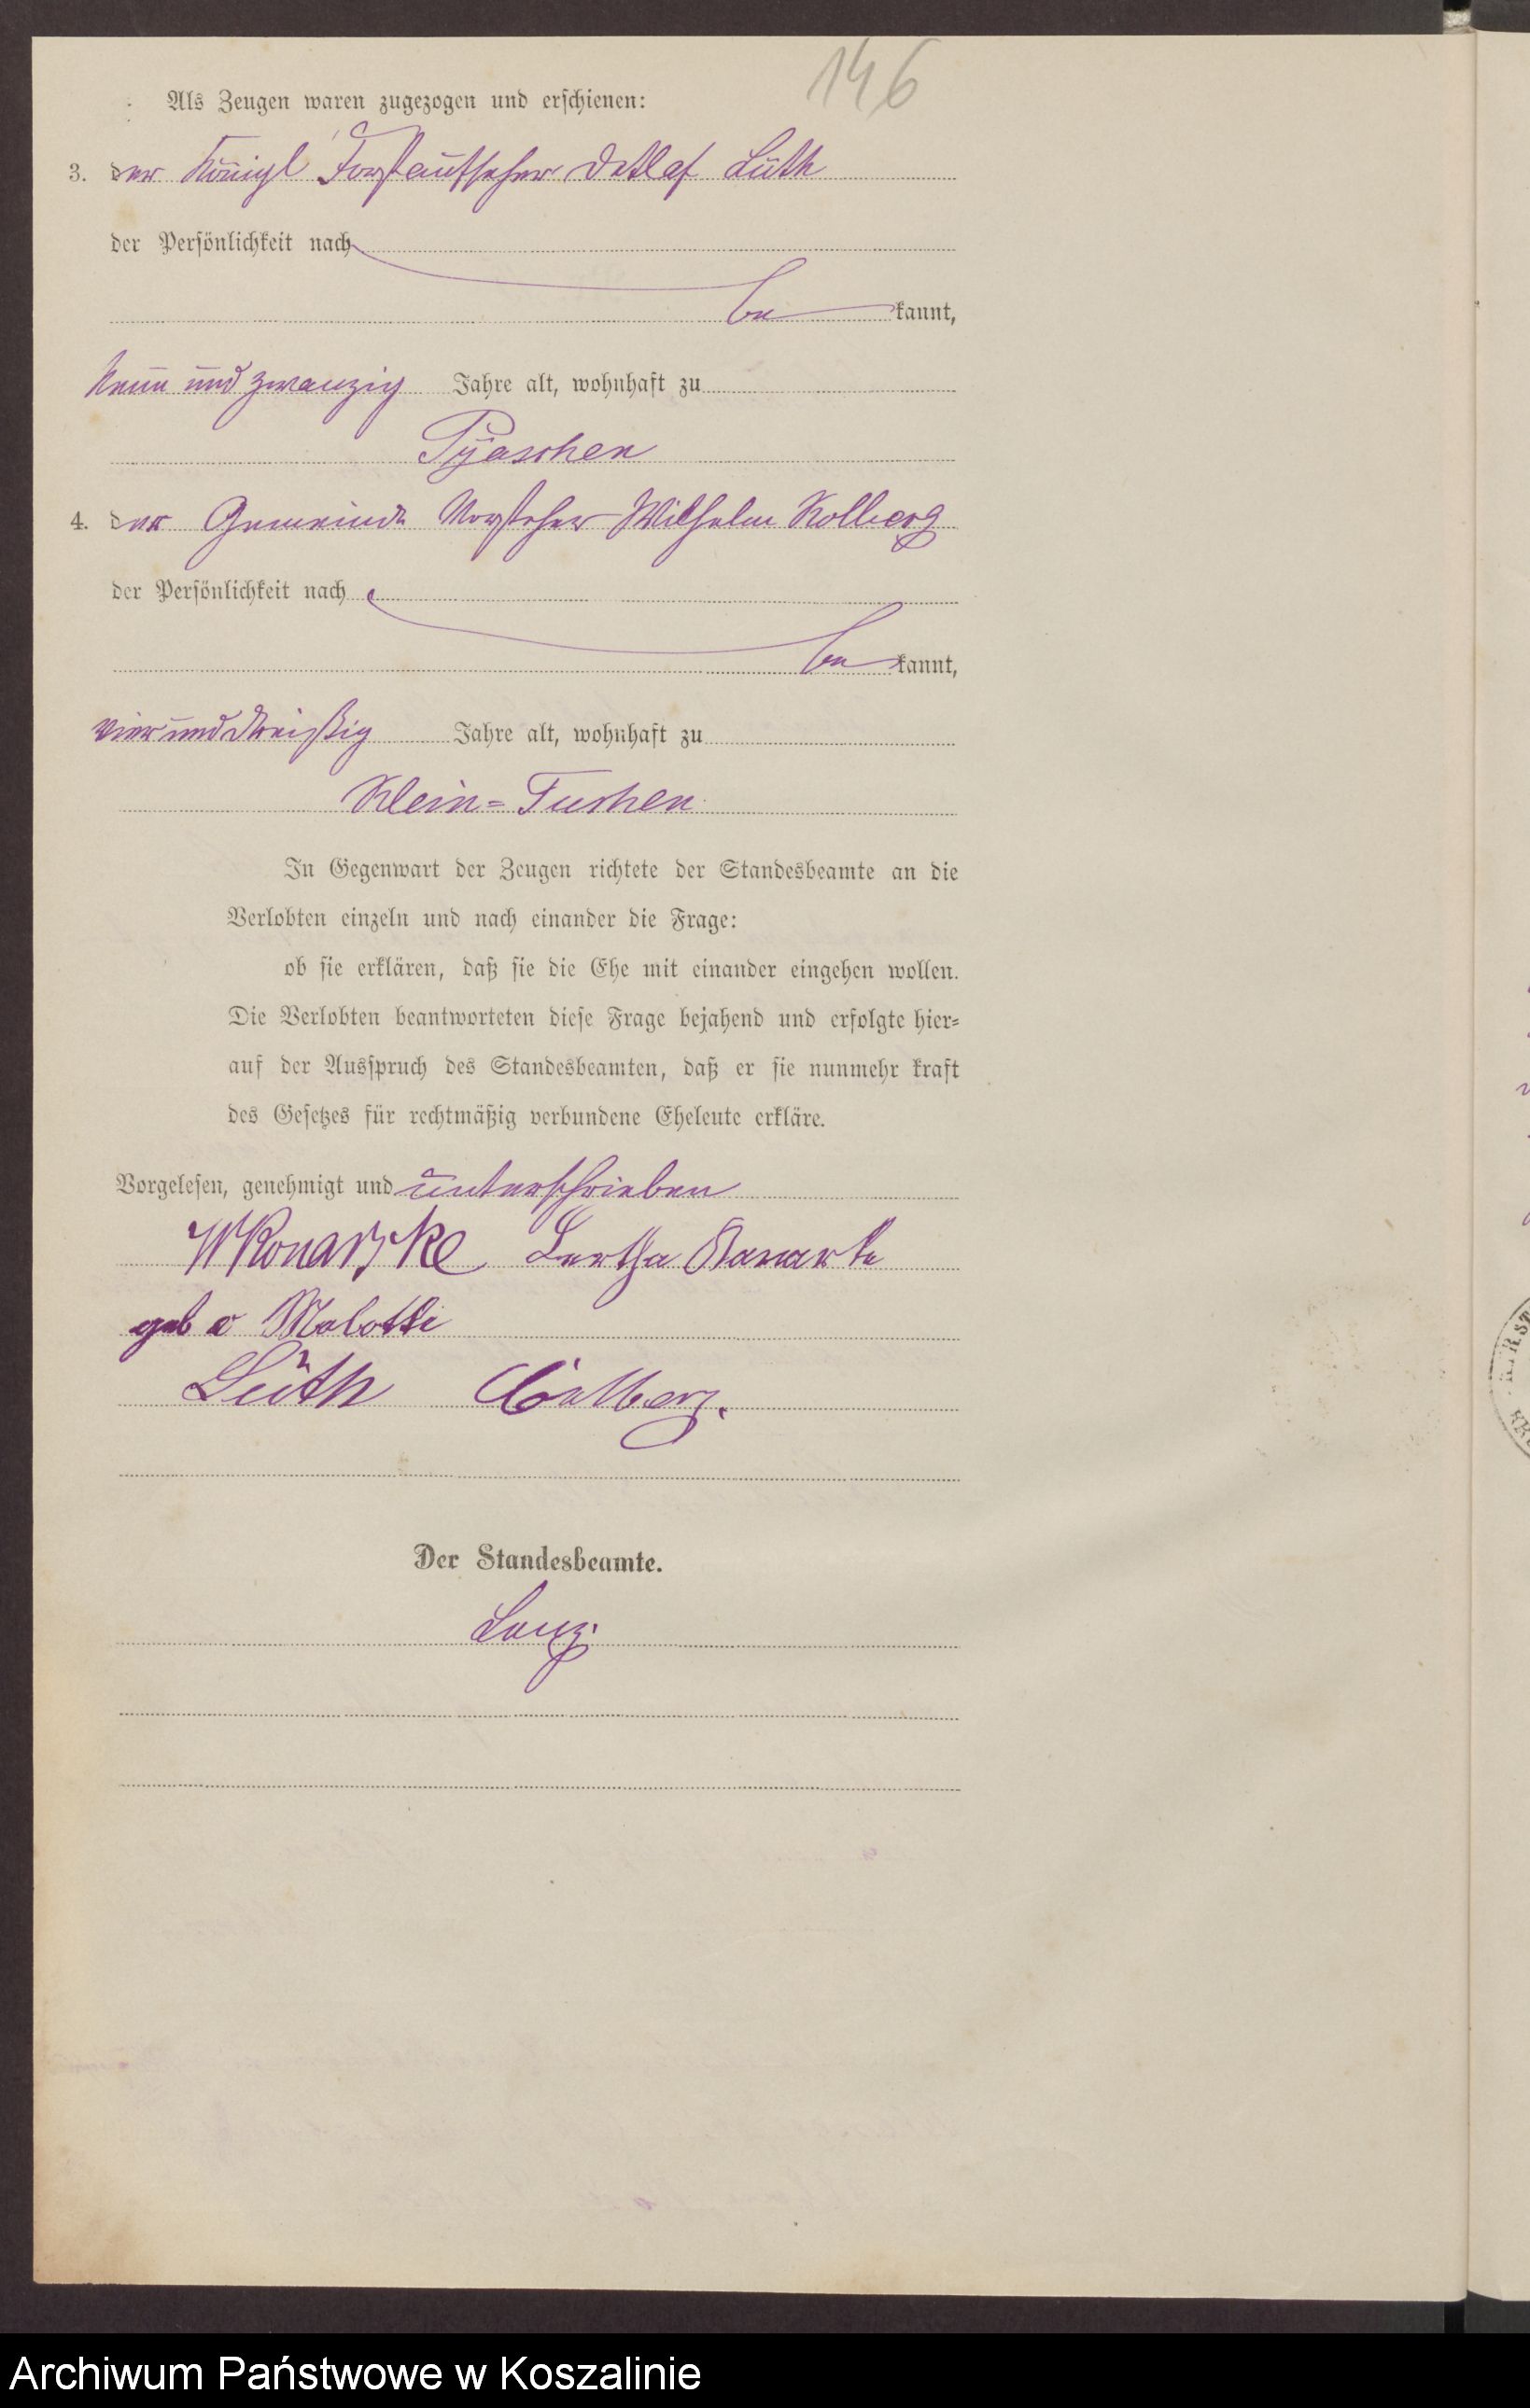 146
Als Zeugen waren zugezogen und erschienen:
3. der Königl Forstaufseher Detlef Lüth
der Persönlichkeit nach
be kannt,
neun und zwanzig Jahre alt, wohnhaft zu
Pyaschen
4. der Gemeinde Vorsteher Wilhelm Kolberg
der Persönlichkeit nach
be kannt,
vier und dreißig Jahre alt, wohnhaft zu
Klein=Tuchen
In Gegenwart der Zeugen richtete der Standesbeamte an die
Verlobten einzeln und nach einander die Frage:
ob sie erklären, daß sie die Ehe mit einander eingehen wollen.
Die Verlobten beantworteten diese Frage bejahend und erfolgte hier=
auf der Ausspruch des Standesbeamten, daß er sie nunmehr kraft
des Gesetzes für rechtmäßig verbundene Eheleute erkläre.
Vorgelesen, genehmigt und unterschrieben
W Konarske Bertha
geb v Malotki
Lüth Kolberg.
Der Standesbeamte.
Lanz.
Archiwum Państwowe w Koszalinie